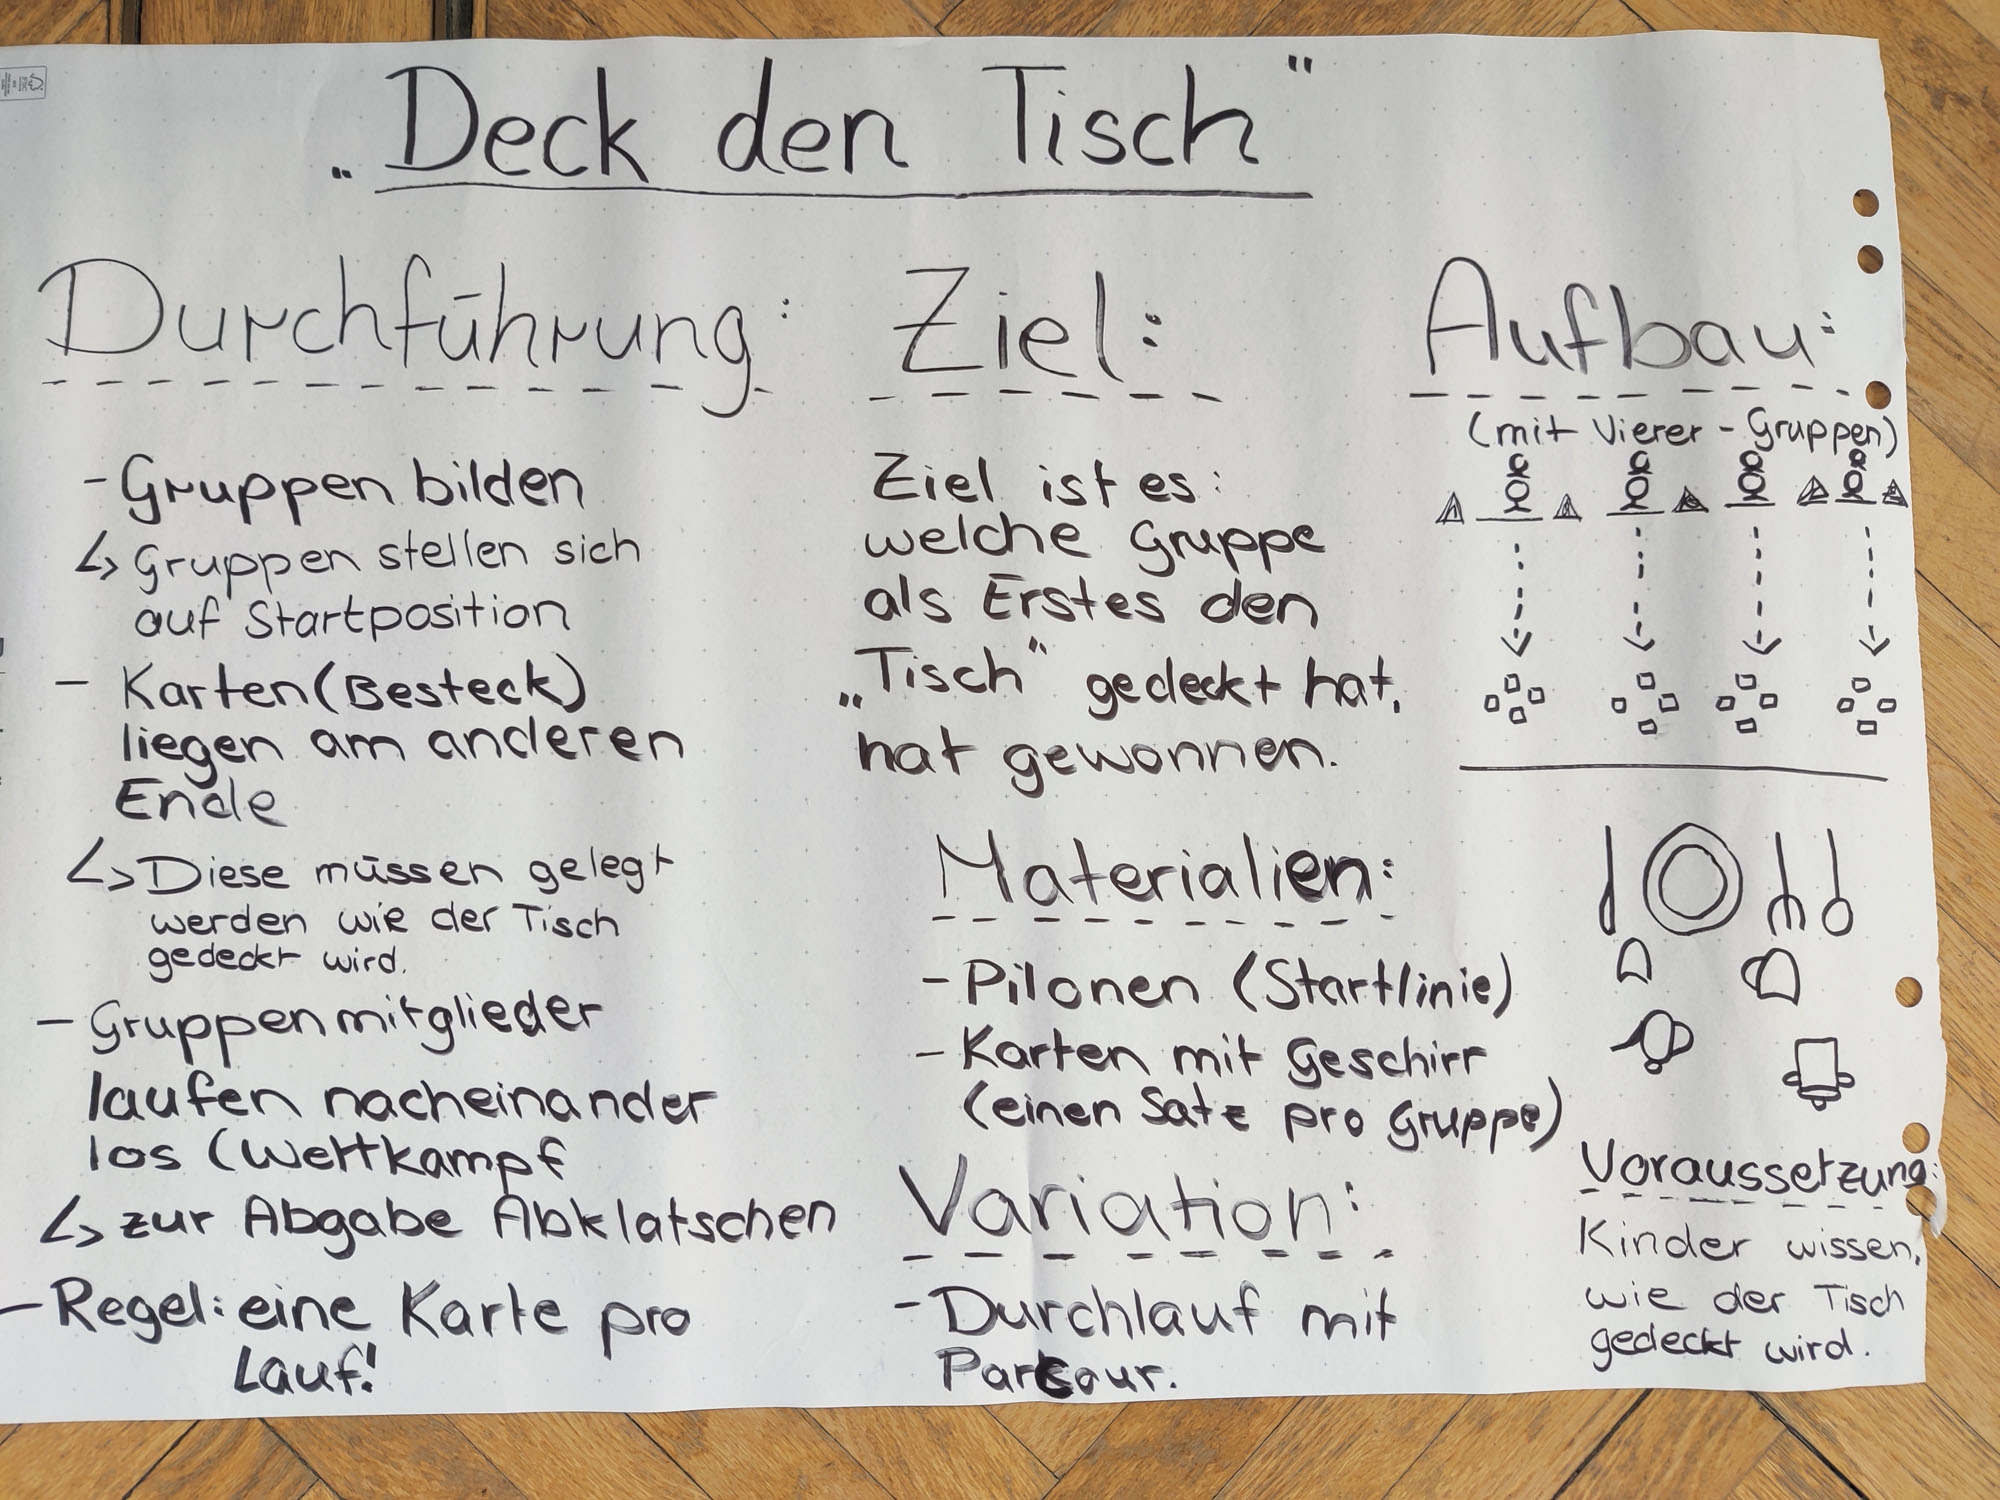 „Deck den Tisch“
Durchführung:
- Gruppen bilden
↳ Gruppen stellen sich
auf Startposition
- Karten (Besteck)
liegen am anderen
Ende
↳ Diese müssen gelegt
werden wie der Tisch
gedeckt wird.
- Gruppenmitglieder
laufen nacheinander
los (Wettkampf
↳ zur Abgabe Abklatschen
- Regel: eine Karte pro
Lauf!
Ziel:
Ziel ist es:
welche Gruppe
als Erstes den
„Tisch“ gedeckt hat,
hat gewonnen.
Materialien:
- Pilonen (Startlinie)
- Karten mit Geschirr
(einen Satz pro Gruppe)
Variation:
- Durchlauf mit
Parcour.
Aufbau:
(mit Vierer-Gruppen)
Voraussetzung:
Kinder wissen,
wie der Tisch
gedeckt wird.